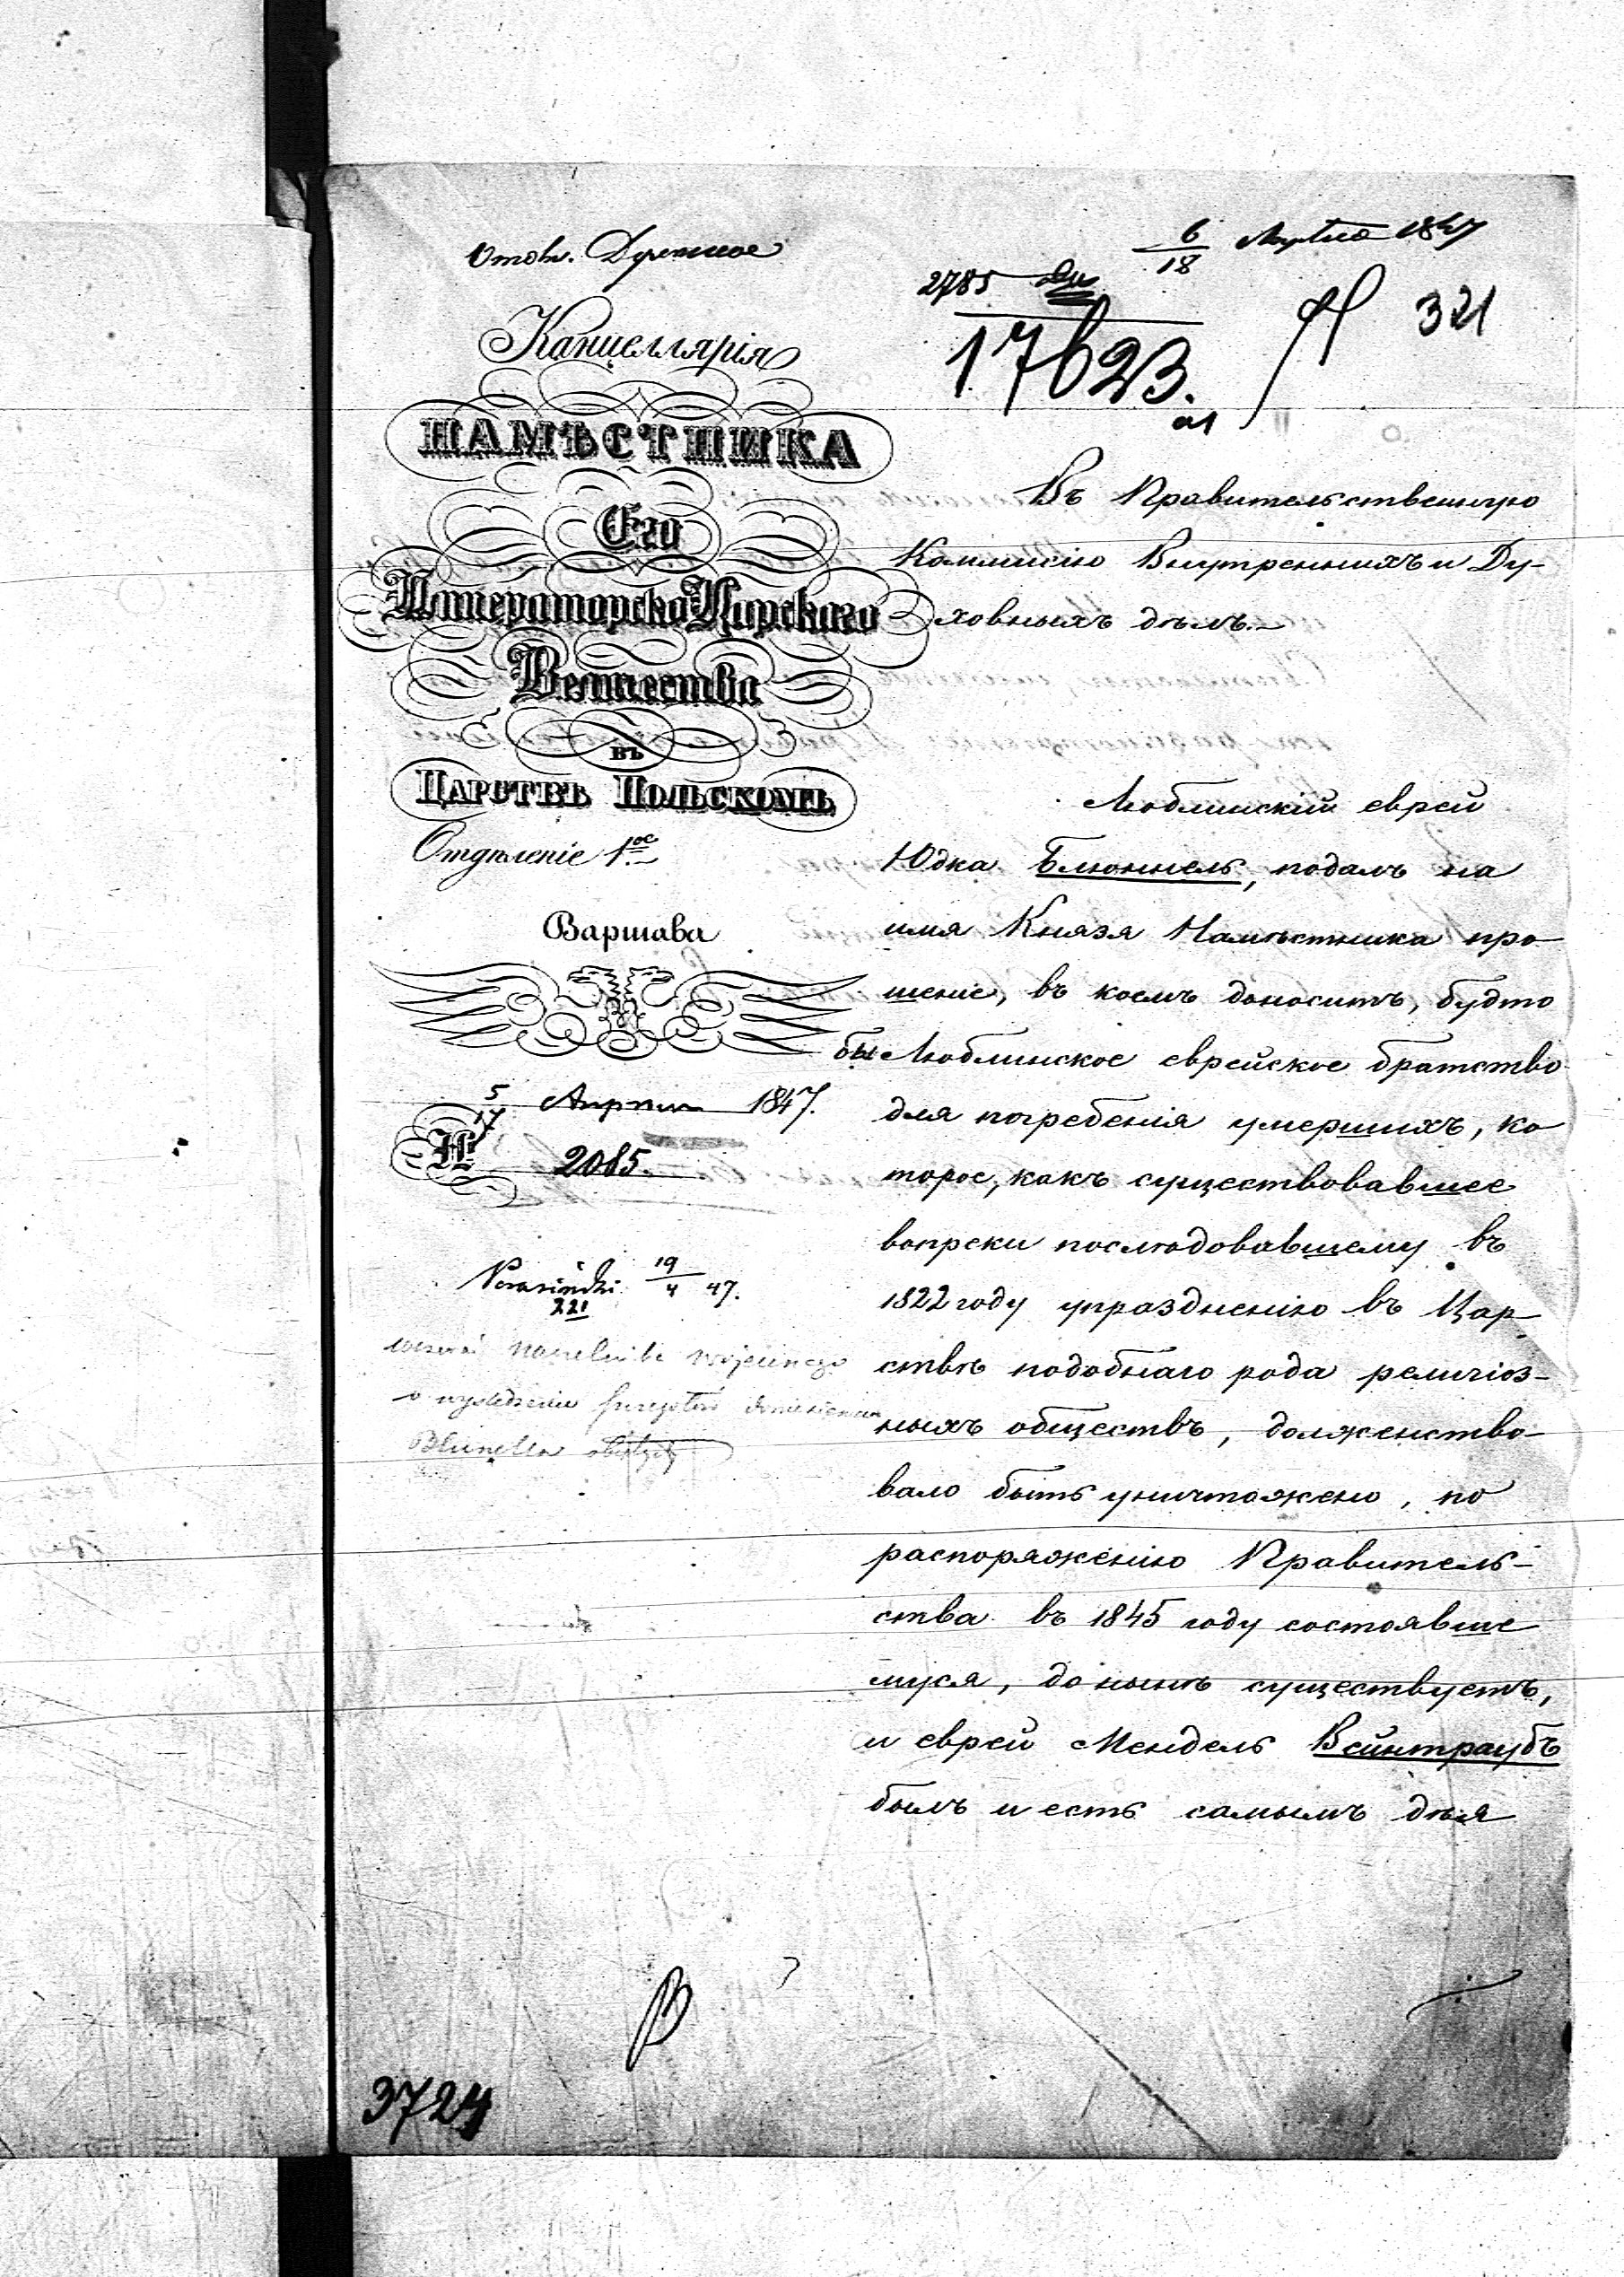 Отдѣл. Духовное
6/18 Апрѣля 1847
2785
17623.
321
Канцеллярія
НАМѢСТНИКА
Его
Императорско Царскаго
Величества
въ
Царствѣ Польскомъ
Отдѣленіе 1ое
Варшава
5/17 Апрѣля 1847.
№ 2085.
19/4 47.
221
Blunella
Въ Правительственную
Коммисію Внутреннихъ и Ду-
ховныхъ дѣлъ.
Люблинскій еврей
Юдка Блюмель, подалъ на
имя Князя Намѣстника про-
шеніе, въ коемъ доноситъ, будто
бы Люблинское еврейское братство
для погребенія умершихъ, ко
торое, какъ существовавшее
вопреки послѣдовавшему въ
1822 году упраздненію въ Цар-
ствѣ подобнаго рода религіоз-
ныхъ обществъ, долженство-
вало быть уничтожено, по
распоряженію Правитель-
ства въ 1845 году состоявше
муся, до нынѣ существуетъ,
и еврей Мендель Вейнтраубъ
былъ и есть самымъ дѣя
3724